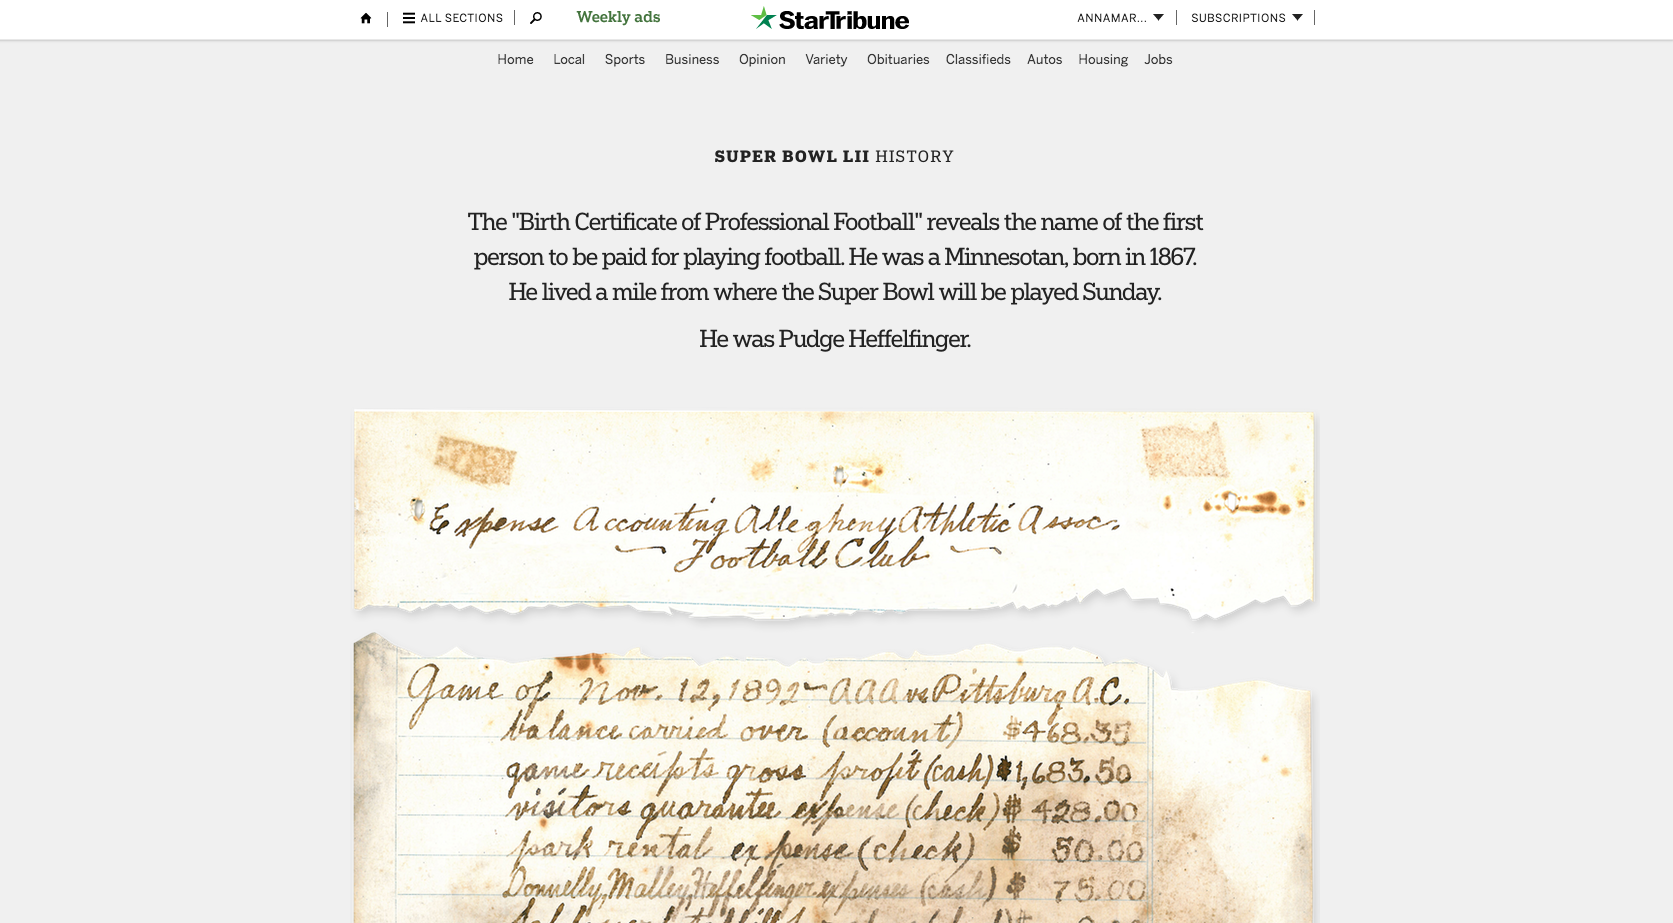 ALL SECTIONS
Weekly ads
StarTribune
ANNAMAR...
SUBSCRIPTIONS
Home Local Sports Business Opinion Variety Obituaries Classifieds Autos Housing Jobs
SUPER BOWL LII HISTORY
The "Birth Certificate of Professional Football" reveals the name of the first
person to be paid for playing football. He was a Minnesotan, born in 1867.
He lived a mile from where the Super Bowl will be played Sunday.
He was Pudge Heffelfinger.
Expense Accounting Allegheny Athletic Assoc.
Football Club
Game of Nov. 12, 1892 - AAA vs Pittsburg A.C.
balance carried over (account) $468.35
game receipts gross profit (cash) $1,683.50
visitors guarantee expense (check) $ 428.00
park rental expense (check) $ 50.00
Donnelly, Malley, Heffelfinger expenses (cash) $ 75.00